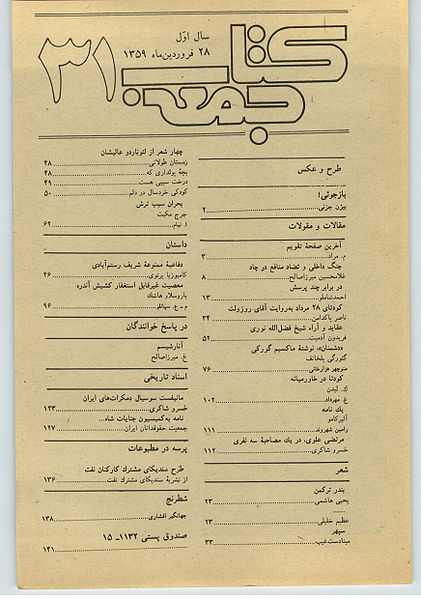 ۳۱
کتاب جمعه
سال اوّل
۲۸ فروردین‌ماه ۱۳۵۹
طرح و عکس
بازجوئی!
بیژن جزنی ۲
مقالات و مقولات
آخرین صفحهٔ تقویم
م. مراد ۳
جنگ داخلی و تضاد منافع در چاد
غلامحسین میرزاصالح ۸
در برابر چند پرسش
احمدشاملو ۱۳
کودتای ۲۸ مرداد به‌روایت آقای روزولت
ناصر پاکدامن ۳۴
عقاید و آراء شیخ فضل‌الله نوری
فریدون آدمیت ۵۲
«دشمنان» نوشتهٔ ماکسیم گورکی
گئورگی پلخانف
منوچهر هزارخانی ۷۶
کودتا در خاورمیانه
ک. لیدن
غ. مهرداد ۱۰۲
یک نامه
آلبرکامو
رامین شهروند ۱۱۱
مرتضی علوی، در یک مصاحبهٔ سه نفری
خسرو شاکری ۱۱۲
شعر
بندر ترکمن
یحیی هاشمی ۲۳
......
عظیم خلیلی ۲۳
سپهر
میناد‌ست‌غیب ۳۳
چهار شعر از لئوناردو عالیشان
زمستان طولانی ۴۸
بچهٔ پولداری که ۴۸
درخت سیبی هست ۴۹
کودکی خردسال در دلم ۵۰
بحران سیب ترش
جرج مکبث
ا. نیام ۶۲
داستان
دفاعیهٔ ممنوعهٔ شریف رستم‌آبادی
کامبوزیا پرتوی ۲۶
معصیت غیرقابل استغفار کشیش آندره
یاروسلاو هاشک
م ـ ع. سپانلو ۹۶
در پاسخ خوانندگان
آنارشیسم
غ. میرزاصالح
اسناد تاریخی
مانیفست سوسیال دمکرات‌های ایران
خسرو شاکری ۱۲۳
نامه به‌کمیسیون جنایات شاه...
جمعیت حقوقدانان ایران ۱۲۷
پرسه در مطبوعات
طرح سندیکای مشترک کارکنان نفت
از نشریهٔ سندیکای مشترک نفت ۱۳۶
شطرنج
جهانگیر افشاری ۱۳۸
صندوق پستی ۱۱۳۲ـ ۱۵
۱۴۱